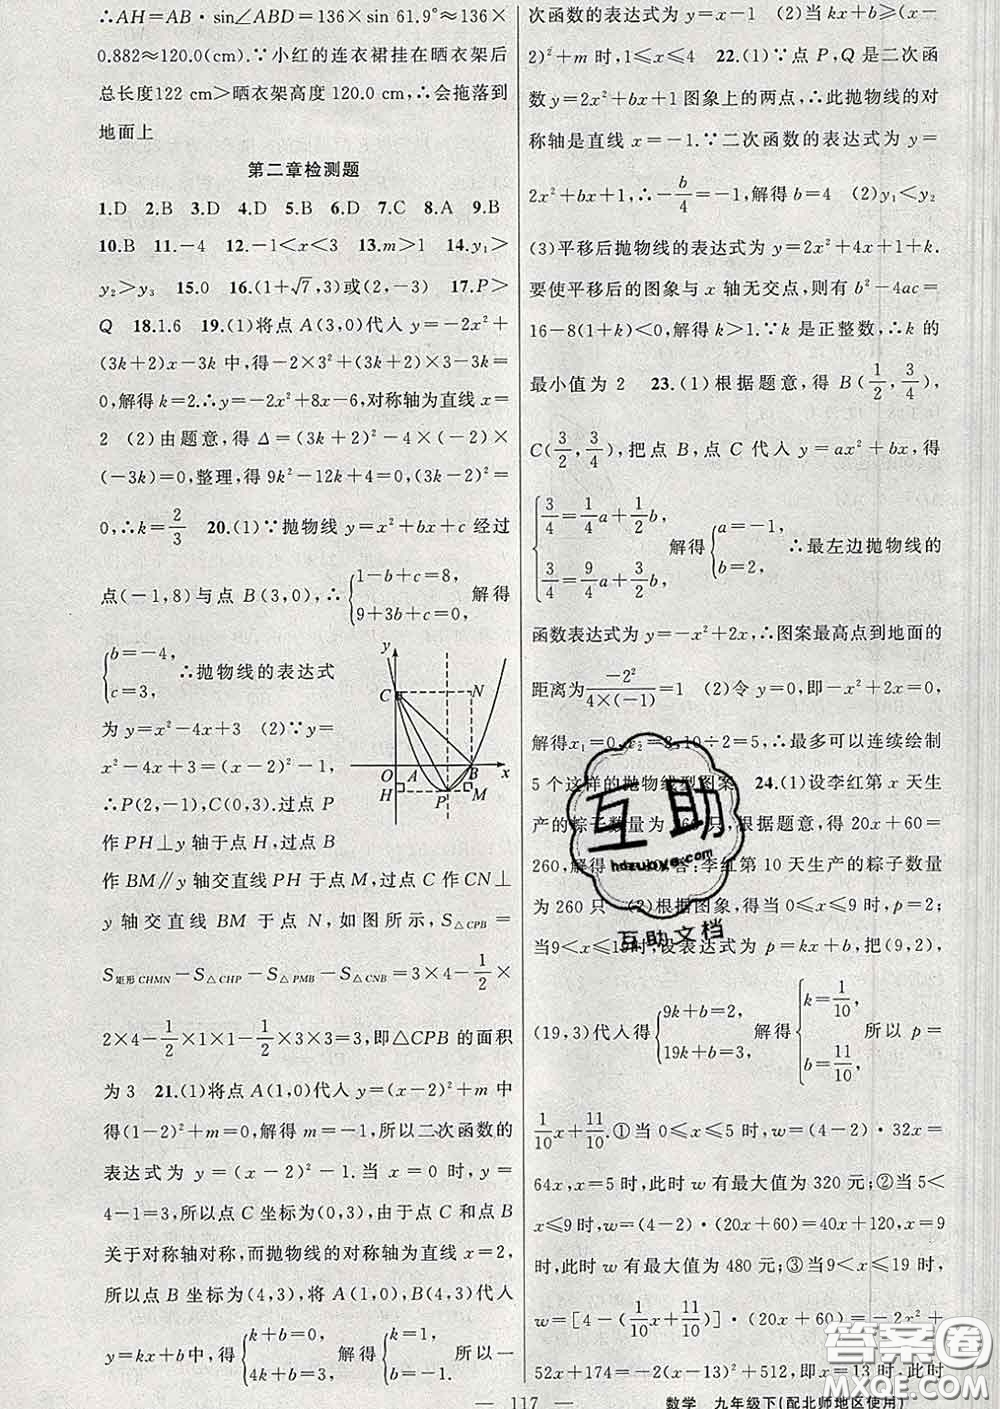 ∴AH=AB·sin∠ABD=136×sin 61.9°≈136×
0.882≈120.0(cm).∵小红的连衣裙挂在晒衣架后
总长度122 cm>晒衣架高度 120.0 cm,∴会拖落到
地面上
第二章检测题
1.D 2.B 3.D 4.D 5.B 6.D 7.C 8.A 9.B
10.B 11.-4 12.-1<x<3 13.m>1 14.y₁>
y₂>y₃ 15.0 16.(1+√7,3)或(2,-3) 17.P>
Q 18.1.6 19.(1)将点 A(3,0)代入 y=-2x²+
(3k+2)x-3k 中,得-2×3²+(3k+2)×3-3k=
0,解得 k=2.∴y=-2x²+8x-6,对称轴为直线 x=
2 (2)由题意,得 Δ=(3k+2)²-4×(-2)×
(-3k)=0,整理,得 9k²-12k+4=0,(3k-2)²=
0,∴k=2/3 20.(1)∵抛物线 y=x²+bx+c 经过
点(-1,8)与点 B(3,0),∴{1-b+c=8, 9+3b+c=0, 解得
{b=-4, c=3, ∴抛物线的表达式
为 y=x²-4x+3 (2)∵y=
x²-4x+3=(x-2)²-1,
∴P(2,-1),C(0,3).过点 P
作 PH⊥y 轴于点 H,过点 B
作 BM∥y 轴交直线 PH 于点 M,过点 C 作 CN⊥
y 轴交直线 BM 于点 N,如图所示,S△CPB=
S矩形CHMN-S△CHP-S△PMB-S△CNB=3×4-1/2×
2×4-1/2×1×1-1/2×3×3=3,即△CPB 的面积
为 3 21.(1)将点 A(1,0)代入 y=(x-2)²+m 中
得(1-2)²+m=0,解得 m=-1,所以二次函数的
表达式为 y=(x-2)²-1.当 x=0 时,y=
4-1=3,所以点 C 坐标为(0,3),由于点 C 和点 B
关于对称轴对称,而抛物线的对称轴为直线 x=2,
所以点 B 坐标为(4,3),将 A(1,0),B(4,3)代入
y=kx+b中,得{k+b=0, 4k+b=3, 解得{k=1, b=-1, 所以一
y
C
N
O
A
B
x
H
P
M
次函数的表达式为 y=x-1 (2)当 kx+b≥(x-
2)²+m 时,1≤x≤4 22.(1)∵点 P,Q 是二次函
数 y=2x²+bx+1 图象上的两点,∴此抛物线的对
称轴是直线 x=-1.∵二次函数的表达式为 y=
2x²+bx+1,∴-b/4=-1,解得 b=4 (2)y₁<y₂
(3)平移后抛物线的表达式为 y=2x²+4x+1+k.
要使平移后的图象与 x 轴无交点,则有 b²-4ac=
16-8(1+k)<0,解得 k>1.∵k 是正整数,∴k 的
最小值为 2 23.(1)根据题意,得 B(1/2,3/4),
C(3/2,3/4),把点 B,点 C 代入 y=ax²+bx,得
{3/4=1/4a+1/2b, 3/4=9/4a+3/2b, 解得{a=-1, b=2, ∴最左边抛物线的
函数表达式为 y=-x²+2x,∴图案最高点到地面的
距离为-2²/4×(-1)=1 (2)令 y=0,即-x²+2x=0,
解得x₁=0,x₂=2,10÷2=5,∴最多可以连续绘制
5 个这样的抛物线型图案 24.(1)设李红第 x 天生
产的粽子数量为 260 只,根据题意,得 20x+60=
260,解得 答:李红第 10 天生产的粽子数量
为 260 只 (2)根据图象,得当 0≤x≤9 时,p=2;
当9<x≤19时,设表达式为 p=kx+b,把(9,2),
(19,3)代入得{9k+b=2, 19k+b=3, 解得{k=1/10, b=11/10, 所以 p=
1/10x+11/10.①当 0≤x≤5 时,w=(4-2)·32x=
64x,x=5 时,此时 w 有最大值为 320 元;②当 5<
x≤9 时,w=(4-2)·(20x+60)=40x+120,x=9
时,此时 w 有最大值为 480 元;③当 9<x≤19 时,
w=[4-(1/10x+11/10)]·(20x+60)=-2x²+
52x+174=-2(x-13)²+512,即 x=13 时,此时
— 117 — 数学 九年级下(配北师地区使用)
互助
hdzuoye.com
互助文档
答案圈